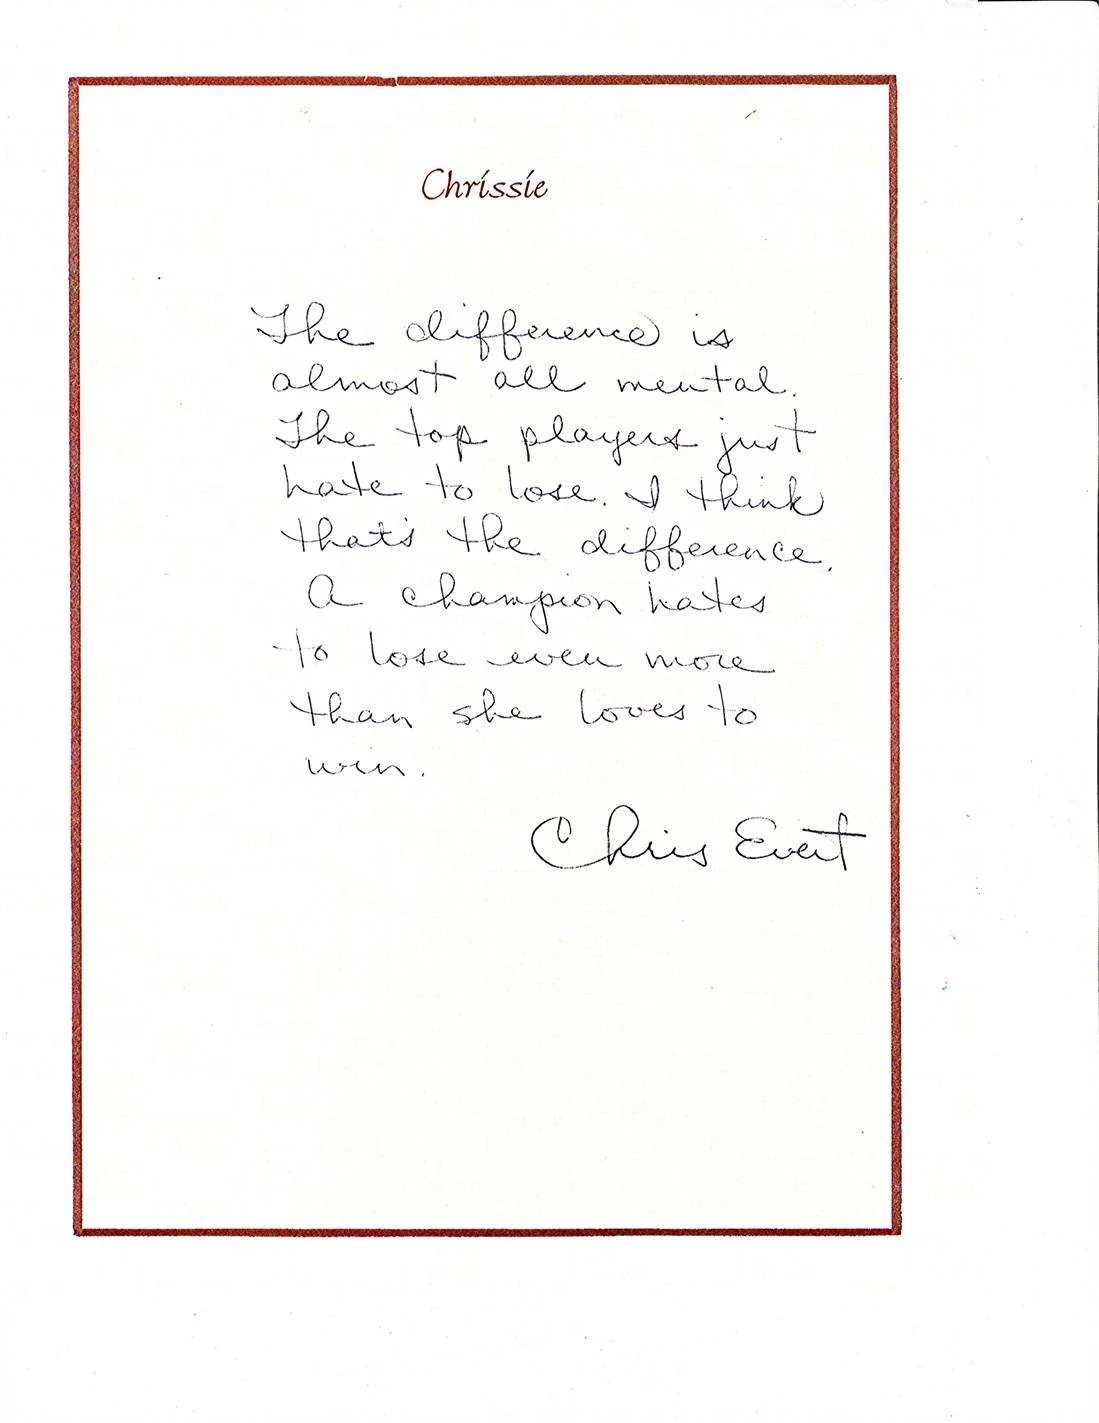 Chrissie
The difference is
almost all mental.
The top players just
hate to lose. I think
that's the difference.
A champion hates
to lose even more
than she loves to
win.
Chris Evert